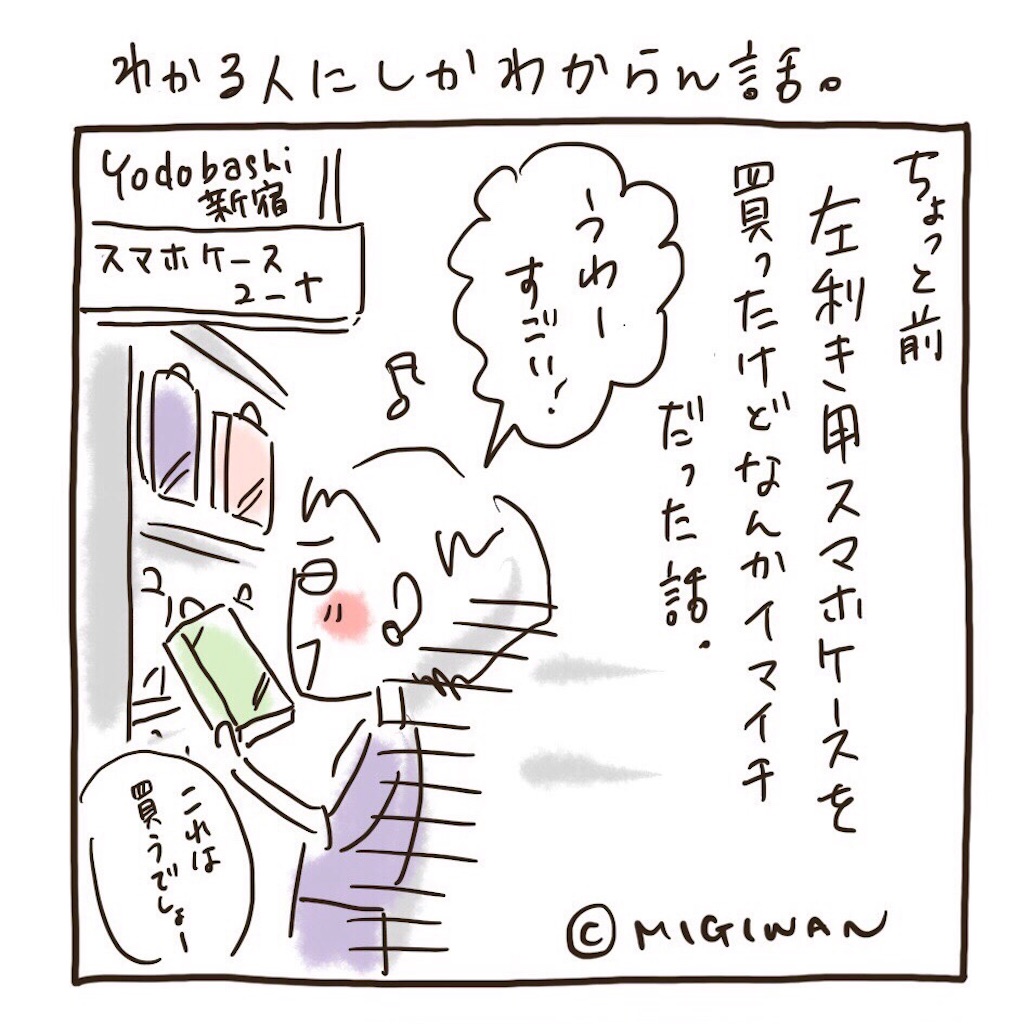 わかる人にしかわからん話。
ちょっと前
左利き用スマホケースを
買ったけどなんかイマイチ
だった話.
うわー
すごい!
Yodobashi
新宿
スマホケース
コーナ
これは
買うでしょー
© MIGIWAN